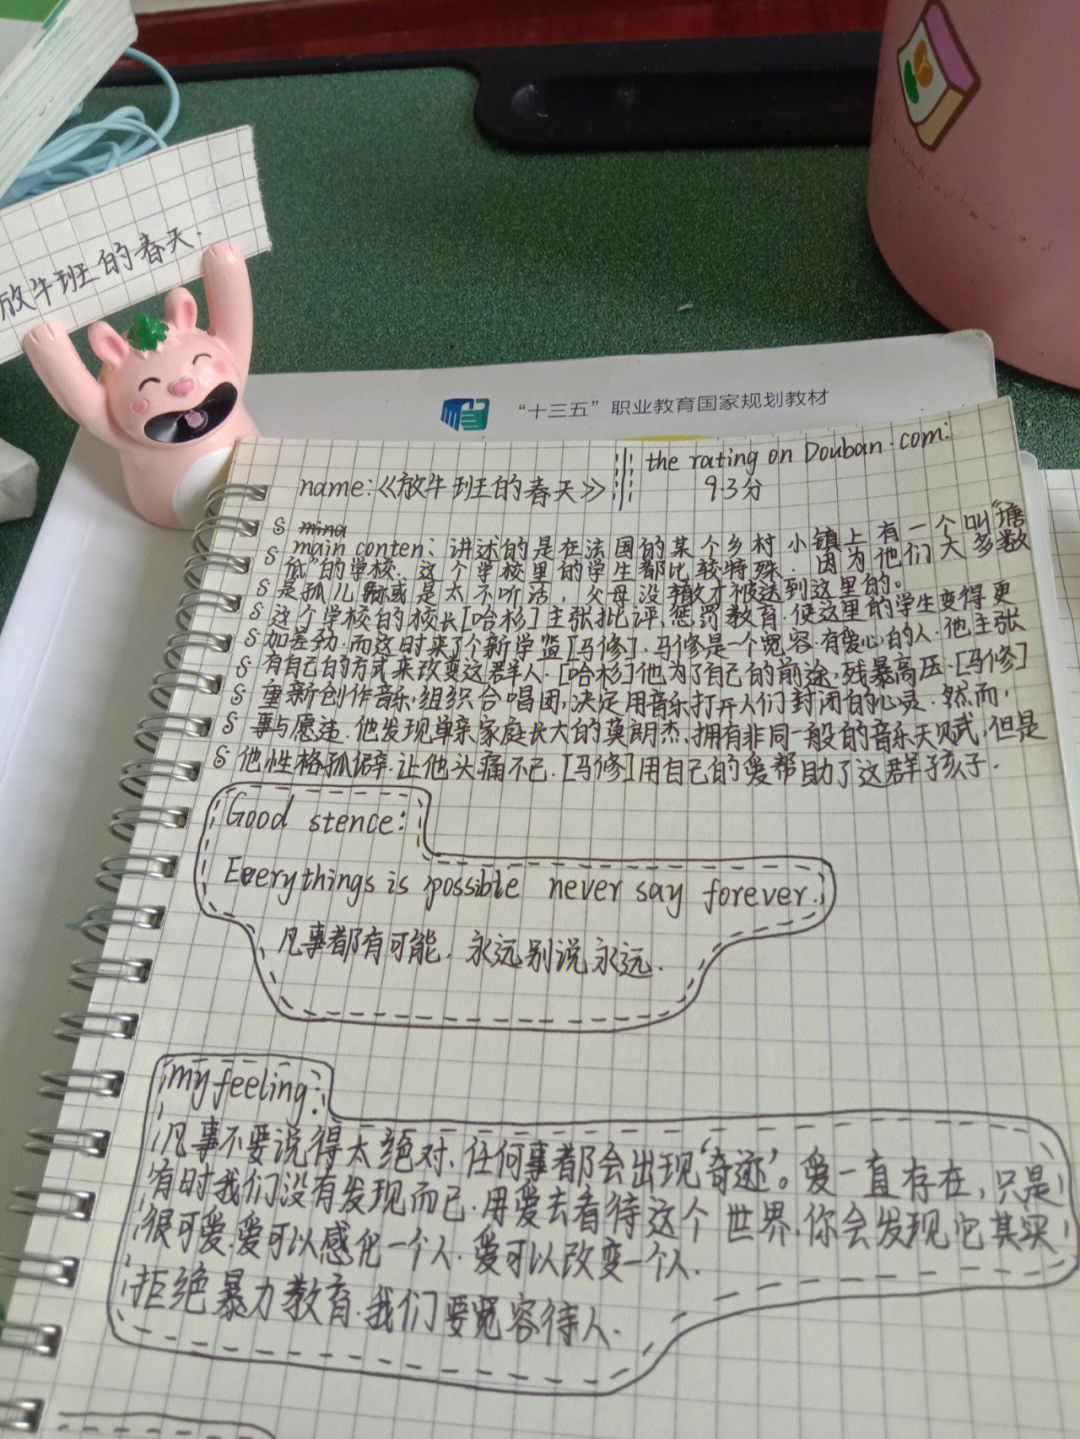 放牛班的春天.
“十三五”职业教育国家规划教材
the rating on Douban.com:
name:《放牛班的春天》
9.3分
mina
main conten: 讲述的是在法国的某个乡村小镇上有一个叫“塘
低”的学校. 这个学校里的学生都比较特殊. 因为他们大多数
是孤儿或是太不听话, 父母没辙才被送到这里的。
这个学校的校长[哈杉]主张批评,惩罚教育.使这里的学生变得更
加差劲.而这时来了个新学监[马修].马修是一个宽容.有爱心的人.他主张
有自己的方式来改变这群人.[哈杉]他为了自己的前途,残暴高压.[马修]
重新创作音乐,组织合唱团,决定用音乐打开人们封闭的心灵.然而,
事与愿违.他发现单亲家庭长大的莫朗杰,拥有非同一般的音乐天赋,但是
他性格孤僻.让他头痛不已.[马修]用自己的爱帮助了这群孩子.
Good stence:
Everythings is possible never say forever.
凡事都有可能. 永远别说永远.
my feeling:
凡事不要说得太绝对、任何事都会出现‘奇迹’。爱一直存在,只是
有时我们没有发现而已.用爱去看待这个世界.你会发现它其实
很可爱.爱可以感化一个人.爱可以改变一个人.
拒绝暴力教育.我们要宽容待人.